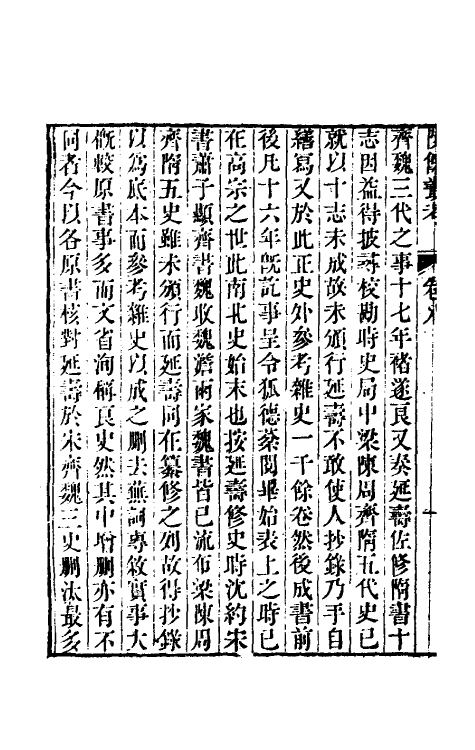 陔餘叢考
卷八
齊魏三代之事十七年褚遂良又奏延壽佐修隋書十
志因益得披尋校勘時史局中梁陳周齊隋五代史已
就以十志未成故未頒行延壽不敢使人抄錄乃手自
繕寫又於此正史外參考雜史一千餘卷然後成書前
後凡十六年旣訖事呈令狐德棻閱畢始表上之時已
在高宗之世此南北史始末也按延壽修史時沈約宋
書蕭子顯齊書魏收魏澹兩家魏書皆已流布梁陳周
齊隋五史雖未頒行而延壽同在纂修之列故得抄錄
以爲底本而參考雜史以成之刪去蕪詞專敘實事大
槪較原書事多而文省洵稱良史然其中增刪亦有不
同者今以各原書核對延壽於宋齊魏三史刪汰最多